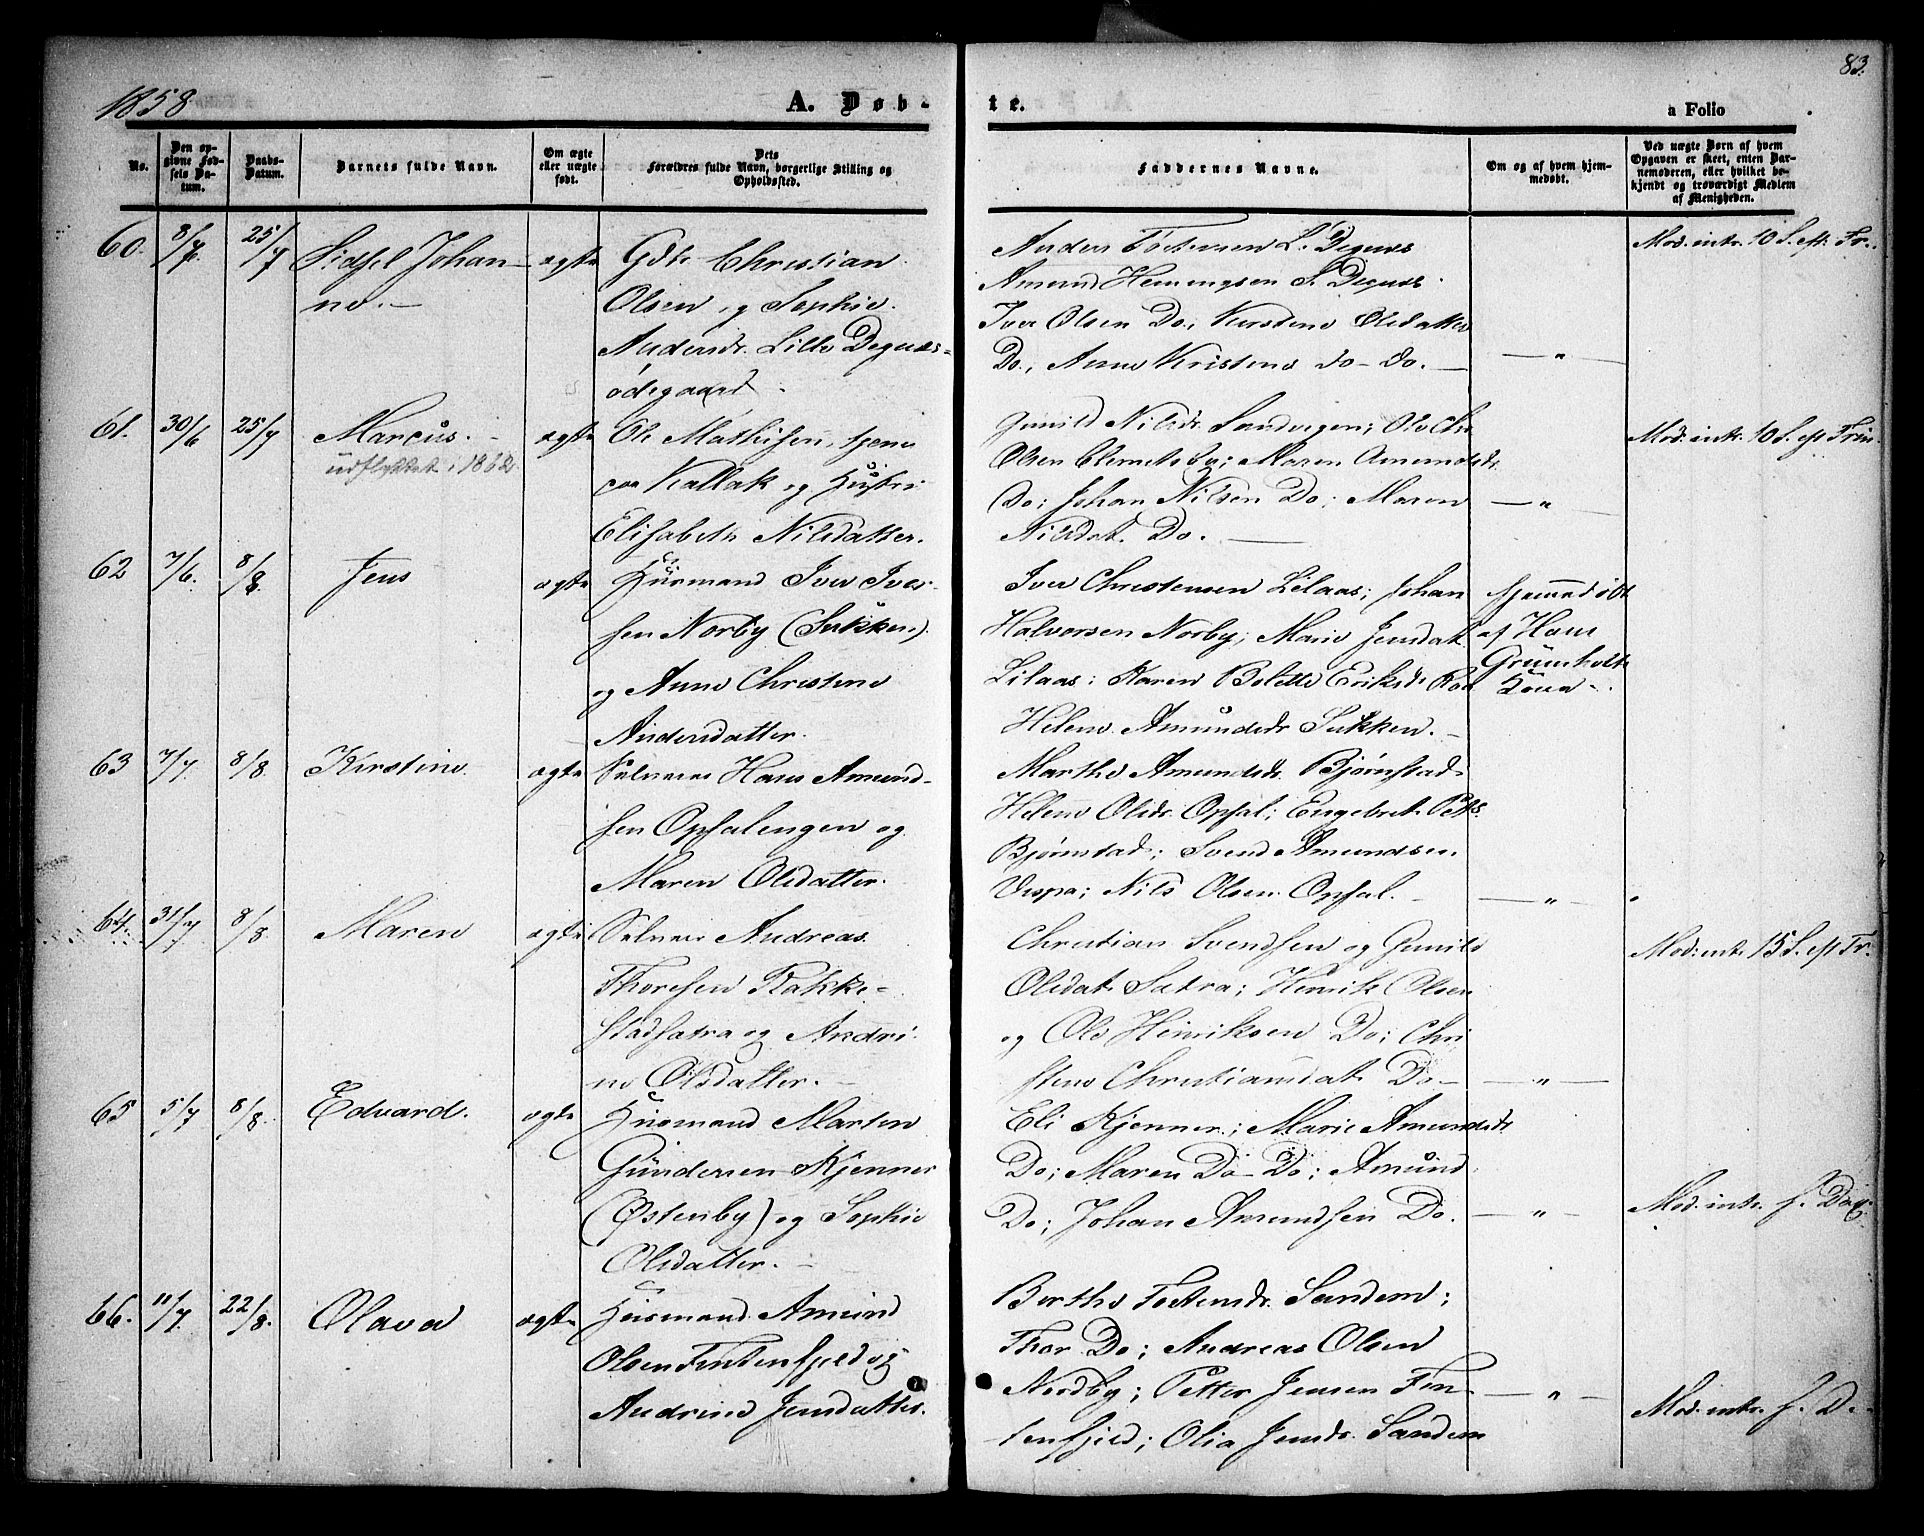 83.
1858
A. Døb-
te.
a Folio
No.
Den op-
givne Fød-
sels Da-
tum.
Daabs-
Datum.
Barnets fulde Navn.
Om ægte
eller uægte
født.
Dets
Forældres fulde Navn, borgerlige Stilling og
Opholdssted.
Faddernes Navne.
Om og af hvem hjem-
medøbt.
Ved uægte Børn af hvem
Opgaven er skeet, enten Bar-
nemoderen, eller hvilket be-
kjendt og troværdigt Medlem
af Menigheden.
60. 8/6. 25/7 Sidsel Johan- ægte Gdr. Christian
ne.
Olsen og Sophie
Andersdr. Lille Degnes-
ødegaard
Anders Tostensen L. Degnes
Amund Hemingsen S. Degnes
Iver Olsen Do; Kirstine Olsdatter
Do, Anne Kristens do- do. — " —
Mod. intr. 10 S. eft. Tr.
61. 30/6 25/7 Marcus. ægte Ole Mathisen, tjene
udflyttet i 1862
paa Kallak og Hustru
Elisabeth Nilsdatter.
Gunild Nilsdr. Sandvigen; Ole Chr
Olsen Clemetsby; Maren Amundsdr.
Do; Johan Nilsen Do; Maren — " —
Nilsdat. Do.
Mod. intr. 10 S. eft Trin.
62 7/6. 8/8. Jens ægte Huusmand Iver Iver-
sen Norby (Sukken)
og Anne Christine
Andersdatter.
Iver Christensen Lilaas; Johan
Halvorsen Norby; Marie Jensdat.
Lilaas; Karen Bolette Eriksdr.
Helene Amundsdr Sukken.
hjemmedøbt
af Hans
63 7/7. 8/8. Kirstine ægte Selveier Hans Amund-
sen Opsalengen og
Maren Olsdatter.
Marthe Amundsdr. Bjørnstad
Helene Olsdr. Opsal; Engebret Petts
Bjørnstad; Svend Amundsen
Vespa; Nils Olsen Opsal. — " —
64. 31/7 8/8. Maren ægte Selveier Andreas
Thoresen Rakke-
stadsætra og Andri-
ne Olsdatter.
Christian Svendsen og Gunild
Olsdat. Sætra; Henrik Olsen
og Ole Henriksen Do; Chri-
stine Christiansdat. Do — " —
Mod. intr. 15 S. eft Tr.
65 5/7 8/8. Edvard. ægte Huusmand Marten
Gundersen Kjenner
(Østenby) og Sophie
Olsdatter.
Eli Kjenner; Marie Amundsdr.
Do; Maren Do- Do; Amund
Do; Johan Amundsen Do. — " —
Mod. intr. s. Dag.
66. 11/7. 22/8. Olava ægte Huusmand Amund
Olsen Fintenfjeld og
Andrine Jensdatter.
Berthe Tostensdr. Sandem;
Thor Do; Andreas Olsen
Nordby; Petter Jensen Fin- — " —
tenfjeld; Olia Jensdr. Sandem
Mod. intr. s. D.